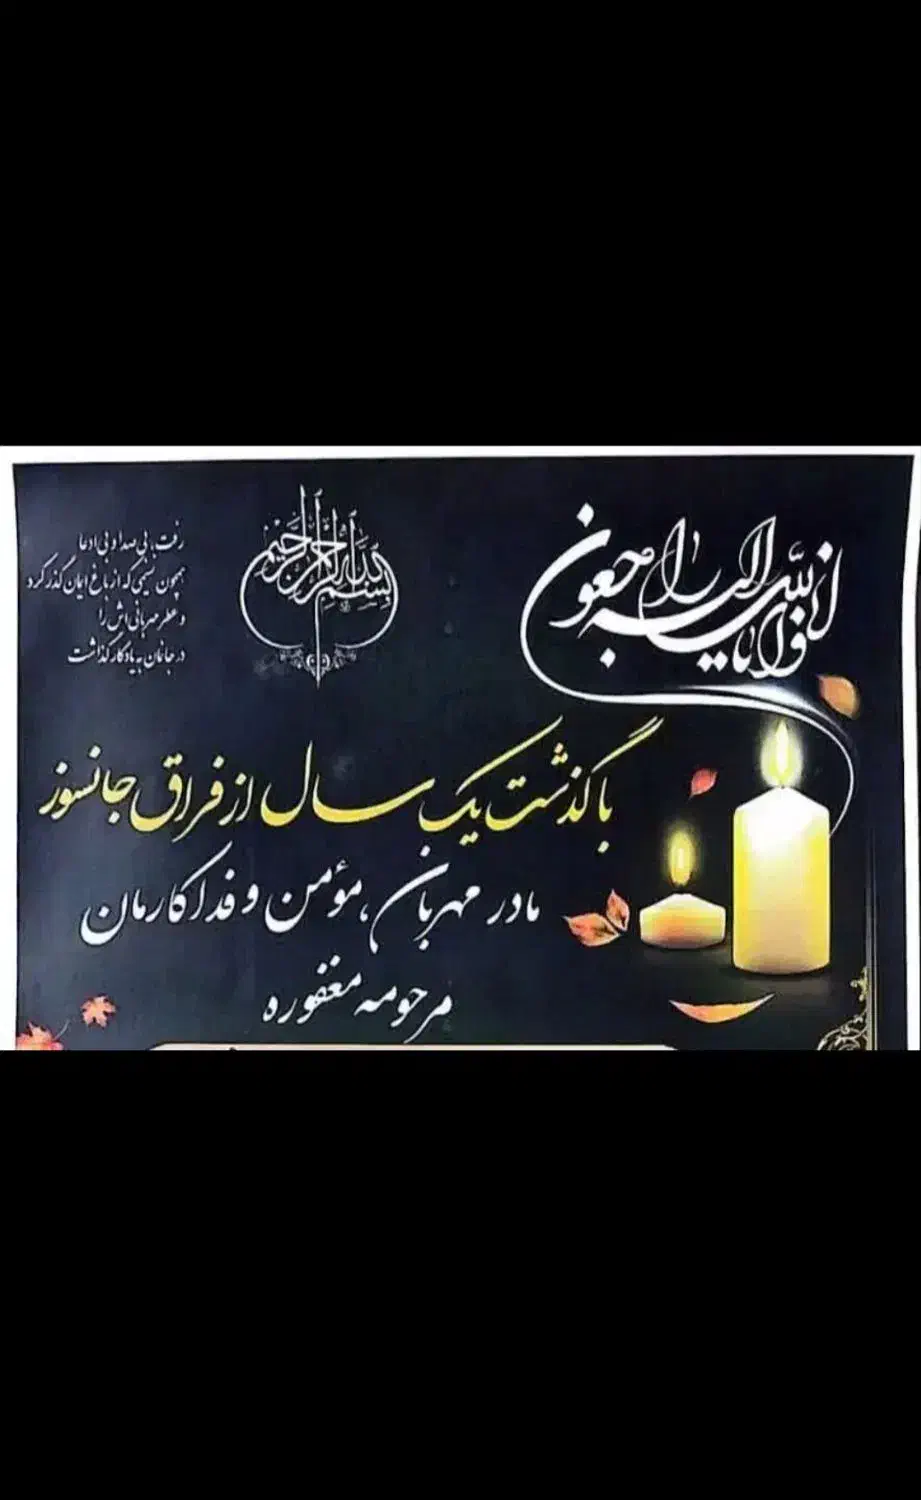 انا لله و انا الیه راجعون
بسم الله الرحمن الرحیم
رفت، بی صدا و بی ادعا
همچون نسیمی که از باغ ایمان گذر کرد
و عطر مهربانی اش را
در جانمان به یادگار گذاشت
با گذشت یک سال از فراق جانسوز
مادر مهربان، مؤمن و فداکارمان
مرحومه مغفوره